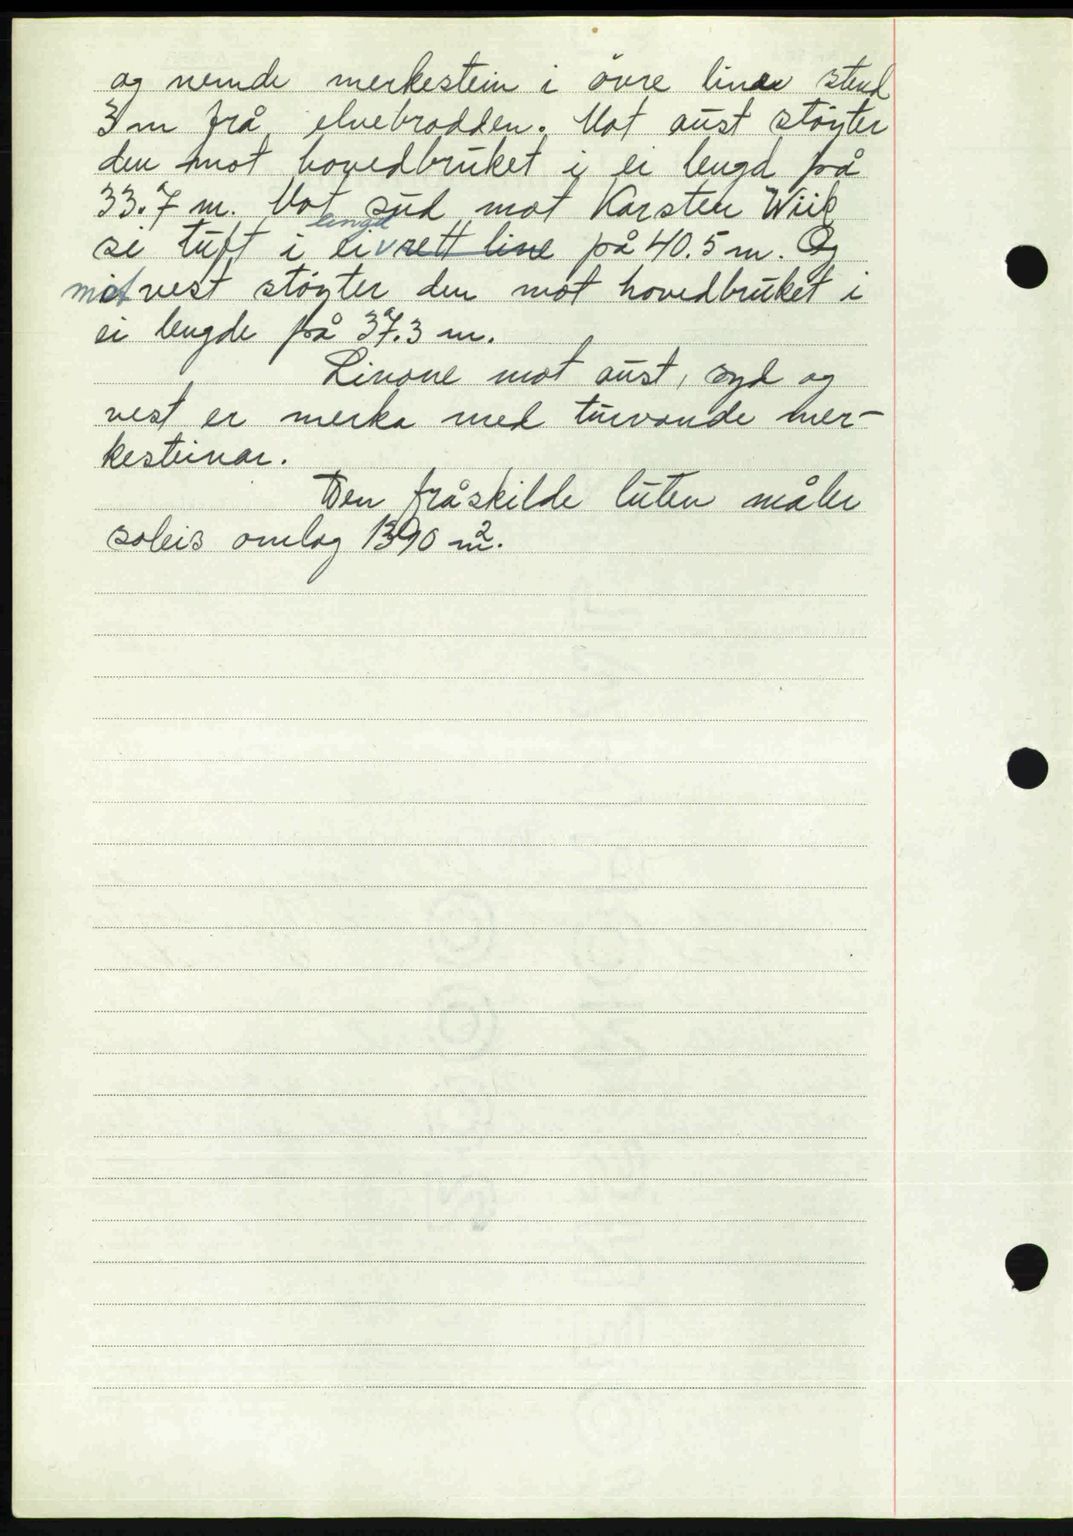 og nemde merkestein i övre linea stend
3 m frå elvebrodden. Mot aust stöyter
den mot hovedbruket i ei lengd på
33.7 m. Mot syd mot Karsten Wiik
si tuft i ei lengd rett line på 40.5 m. Og
mot vest stöyter den mot hovedbruket i
ei lengde på 37.3 m.
Linone mot aust, syd og
vest er merka med turvande mer-
kesteinar.
Den fråskilde luten måler
soleis omlag 1390 m².